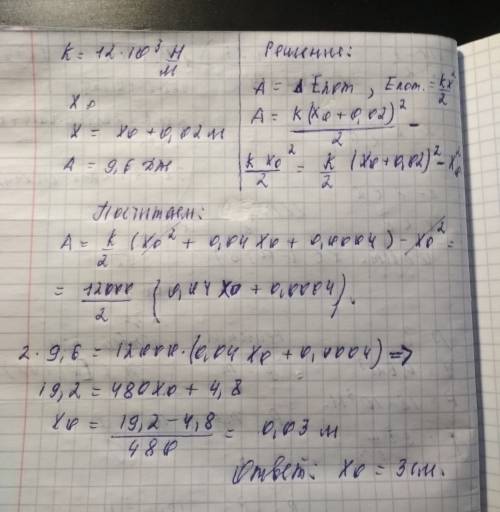 K = 12·10³ Н/м
x₀
x = x₀ + 0,02 м
A = 9,6 Дж
Решение:
A = ΔEпот, Eпот. = kx²/2
A = K(x₀ + 0,02)²/2 -
k x₀²/2 = k/2 (x₀ + 0,02)² - x₀²
Посчитаем:
A = k/2 (x₀² + 0,04 x₀ + 0,0004) - x₀² =
= 12000/2 (0,04 x₀ + 0,0004).
2·9,6 = 12000·(0,04 x₀ + 0,0004) =>
19,2 = 480x₀ + 4,8
x₀ = (19,2 - 4,8)/480 = 0,03 м
Ответ: x₀ = 3см.